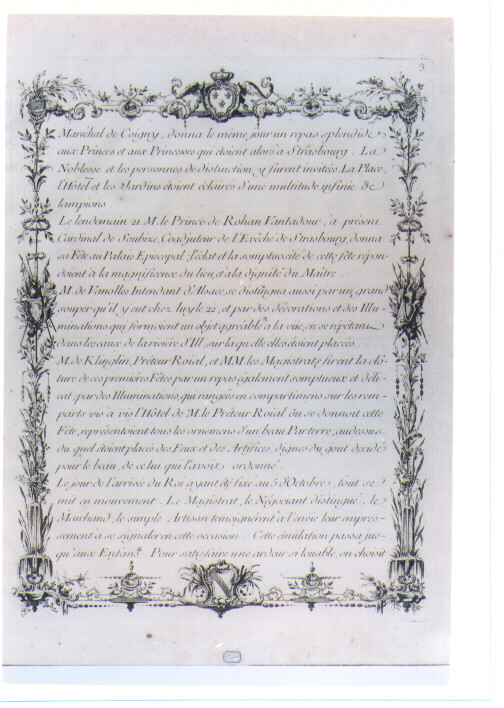 3
Maréchal de Coigny, donna le même jour un repas splendide
aux Princes et aux Princesses qui étoient alors à Strasbourg. La
Noblesse et les personnes de distinction y furent invitées. La Place,
l'Hôtel et les Jardins étoient éclairés d'une multitude infinie de
lampions.
Le lendemain 21. M. le Prince de Rohan Vantadour, a présent
Cardinal de Soubize, Coadjuteur de l'Evêché de Strasbourg, donna
sa Fête au Palais Episcopal, l'éclat et la somptuosité de cette fête répon-
doient à la magnificence du lieu, et à la dignité du Maître.
M. de Vanolles Intendant d'Alsace, se distingua aussi par un grand
souper qu'il y eut chez luy le 22, et par des décorations et des Illu-
minations qui formoient un objet agréable à la vüe, en se répétant
dans les eaux de la rivière d'Ill, sur laquelle elles étoient placées.
M. de Klinglin, Prêteur Roial, et MM. les Magistrats firent la clô-
ture de ces premières Fêtes par un repas également somptueux et déli-
cat; par des Illuminations, qui rangées en compartimens sur les rem-
parts vis à vis l'Hôtel de M. le Prêteur Roial où se donnoit cette
Fête, représentoient tous les ornemens d'un beau Parterre, au dessus
du quel étoient placés des Feux et des Artifices, dignes du gout décidé
pour le beau, de ce lui qui l'avoit ordonné.
Le jour de l'arrivée du Roi ayant été fixé au 5 d'Octobre, tout se
mit en mouvement. Le Magistrat, le Négociant distingué, le
Marchand, le simple Artisan temoignèrent à l'envie leur empres-
sement à se signaler en cette occasion. Cette émulation passa jus-
qu'aux Enfans. Pour satisfaire une ardeur si louable, on choisit